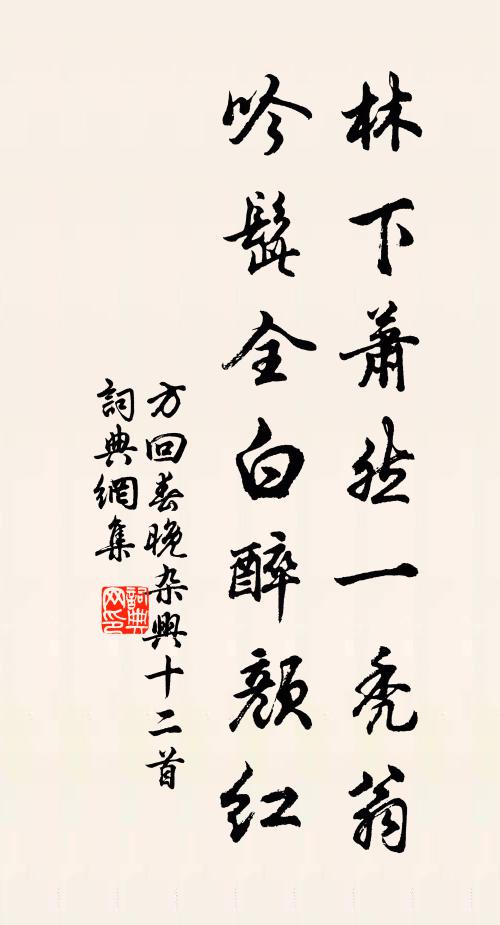 林下蕭然一禿翁
吟髭全白醉顏紅
方回春晚杂興十二首
詞典網集
詞典网印